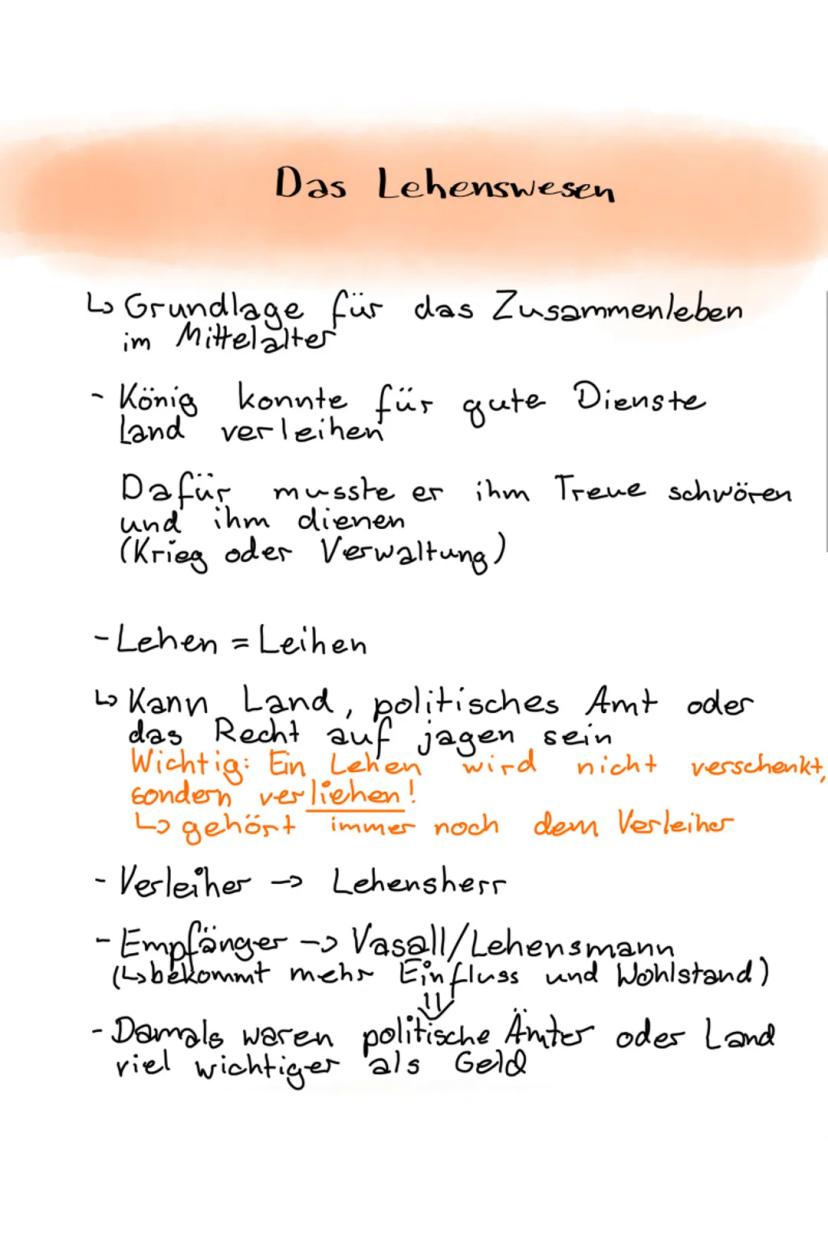 Das Lehenswesen
↳ Grundlage für das Zusammenleben
im Mittelalter
- König konnte für gute Dienste
Land verleihen
Dafür musste er ihm Treue schwören
und ihm dienen
(Krieg oder Verwaltung)
- Lehen = Leihen
↳ Kann Land, politisches Amt oder
das Recht auf jagen sein
Wichtig: Ein Lehen wird nicht verschenkt,
sondern verliehen!
↳ gehört immer noch dem Verleiher
- Verleiher -> Lehensherr
- Empfänger -> Vasall/Lehensmann
(↳ bekommt mehr Einfluss und Wohlstand)
⇓
- Damals waren politische Ämter oder Land
viel wichtiger als Geld